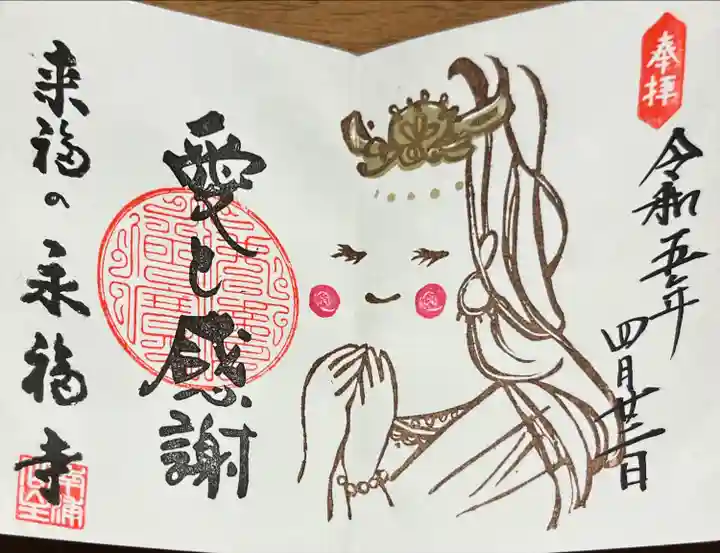 奉拝
令和五年
四月廿三日
愛と感謝
来福の永福寺